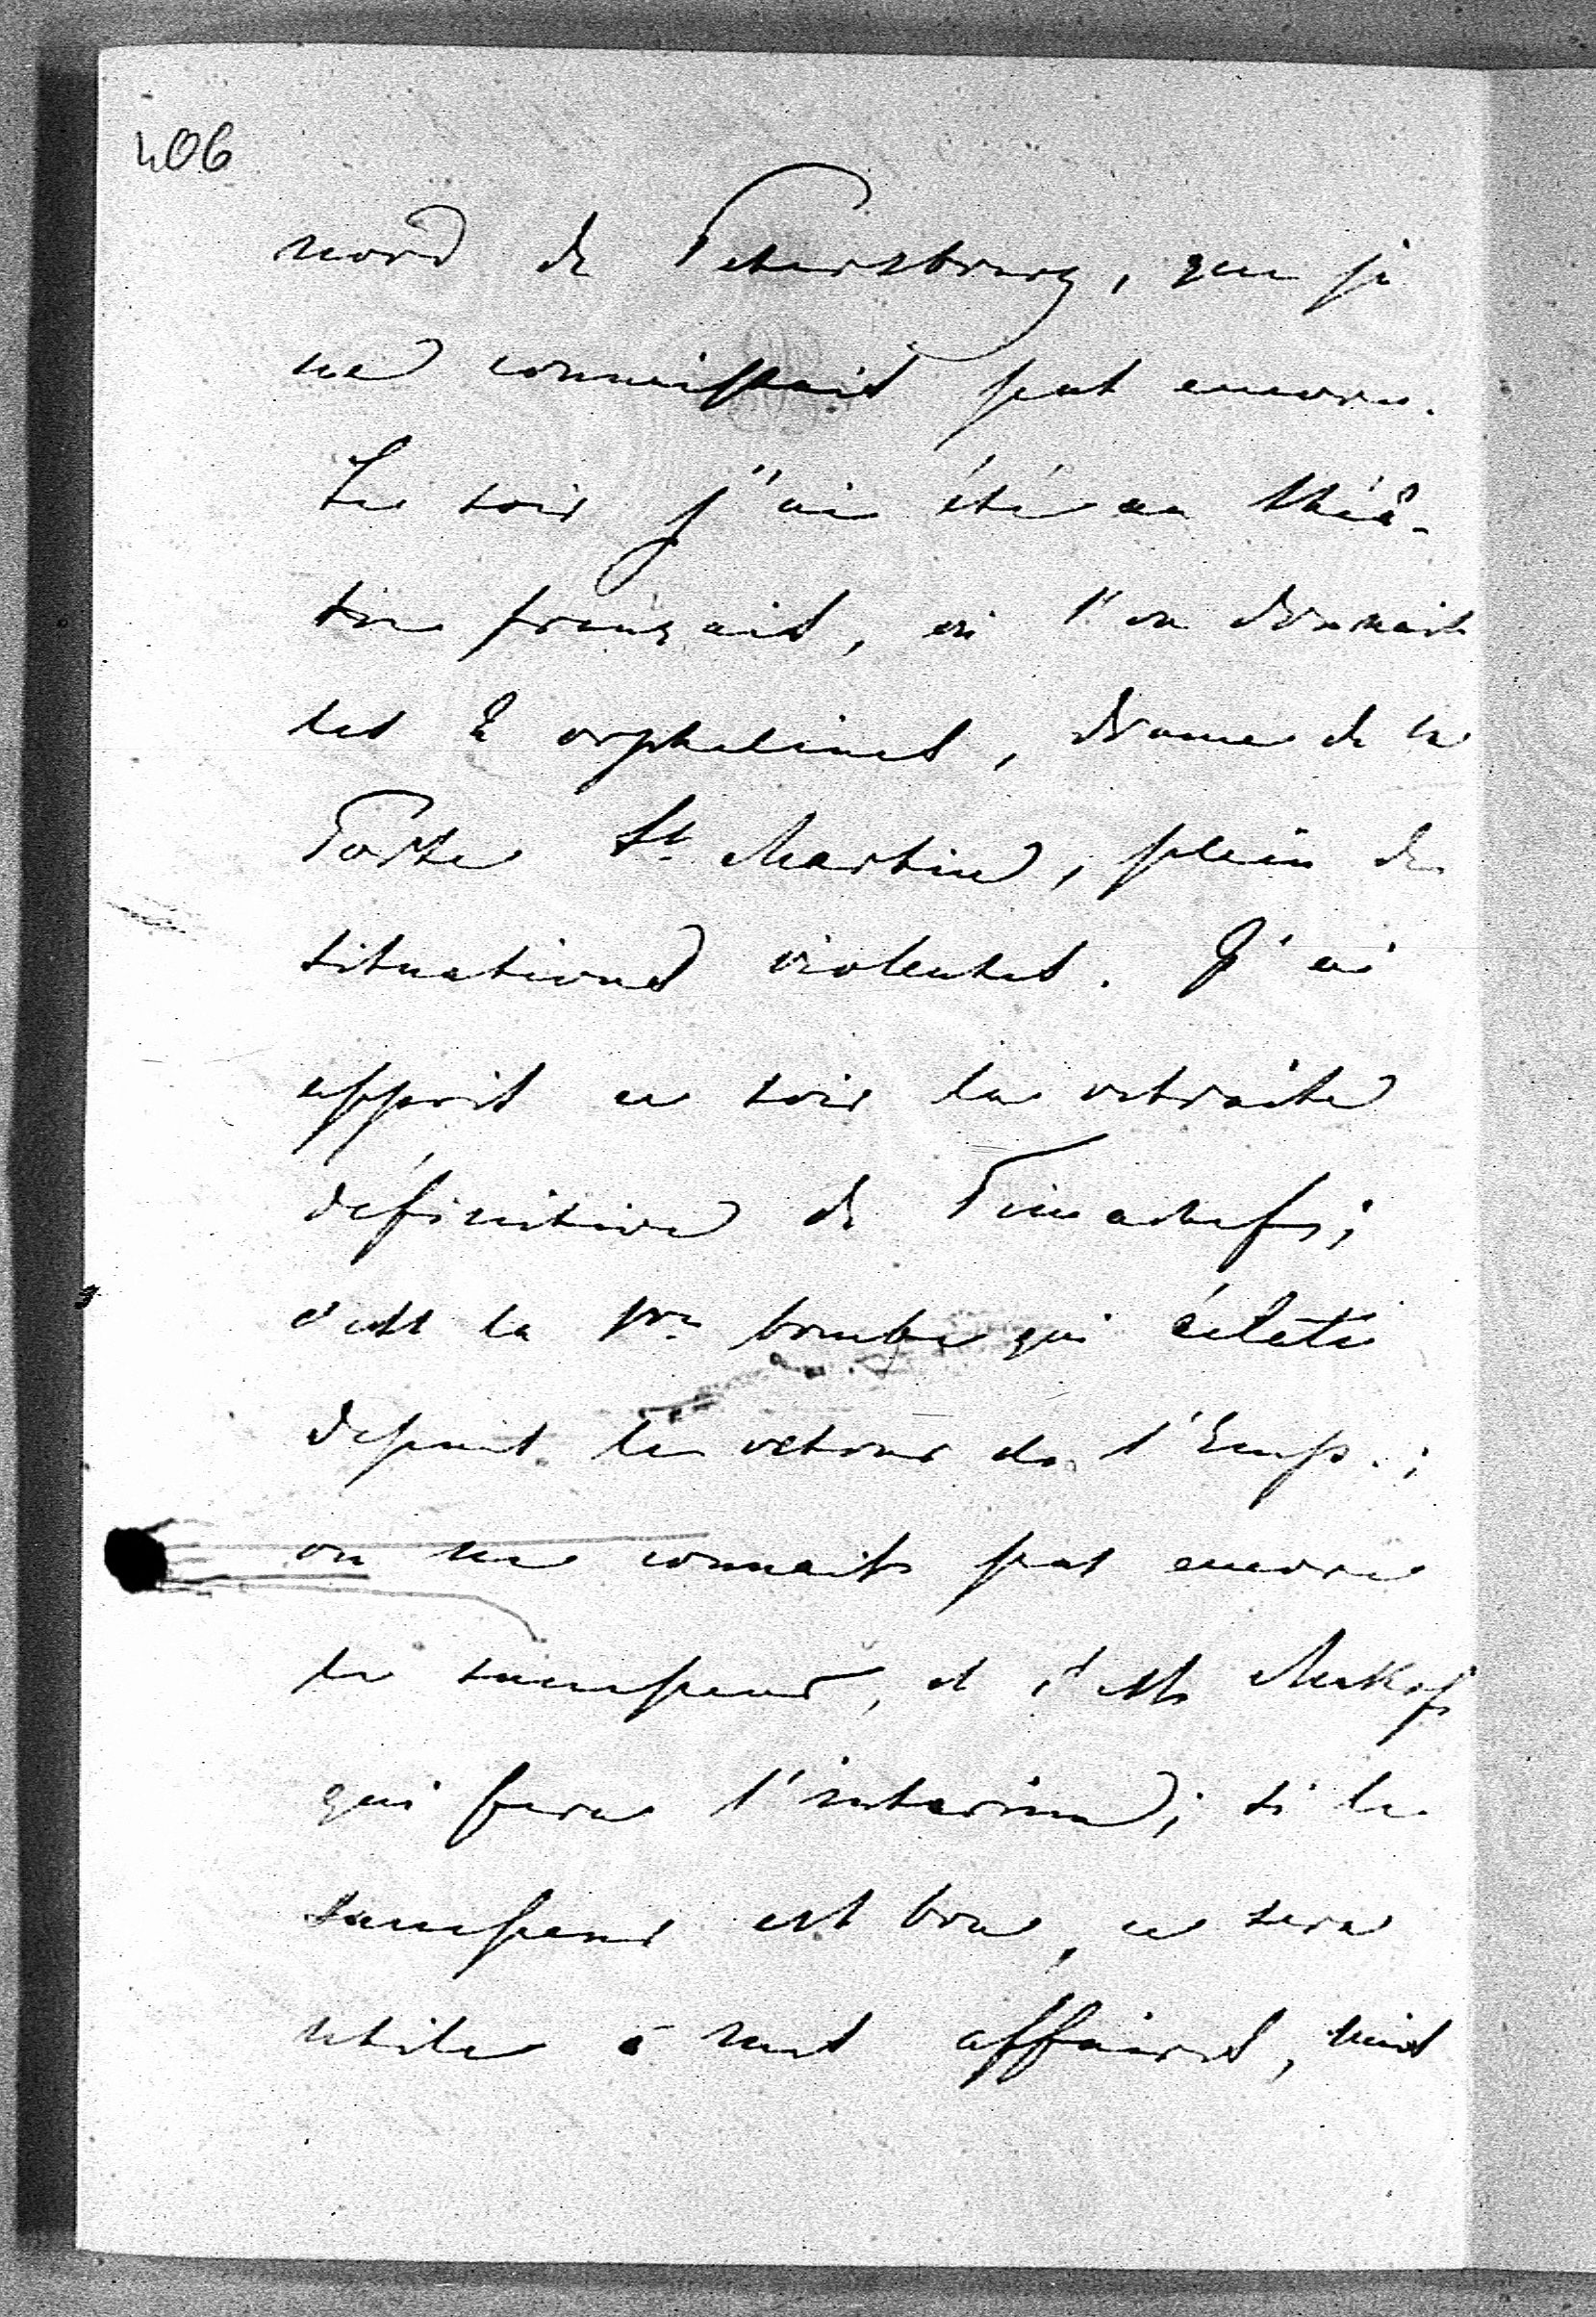 406
nord de Petersbourg, que je
ne connaissais pas encore.
Le soir j'ai été au théâ-
tre français, où l'on donnait
les 2 orphelines, drame de la
Porte St. Martin, plein de
situations violentes. J'ai
appris ce soir la retraite
définitive de Timachefs;
c'est la 1re bombe qui éclate
depuis le retour de l'Emp.;
on ne connait pas encore
le successeur, et c'est Makof
qui fera l'intérim; si le
successeur est bon, ce sera
utile à nos affaires, mais